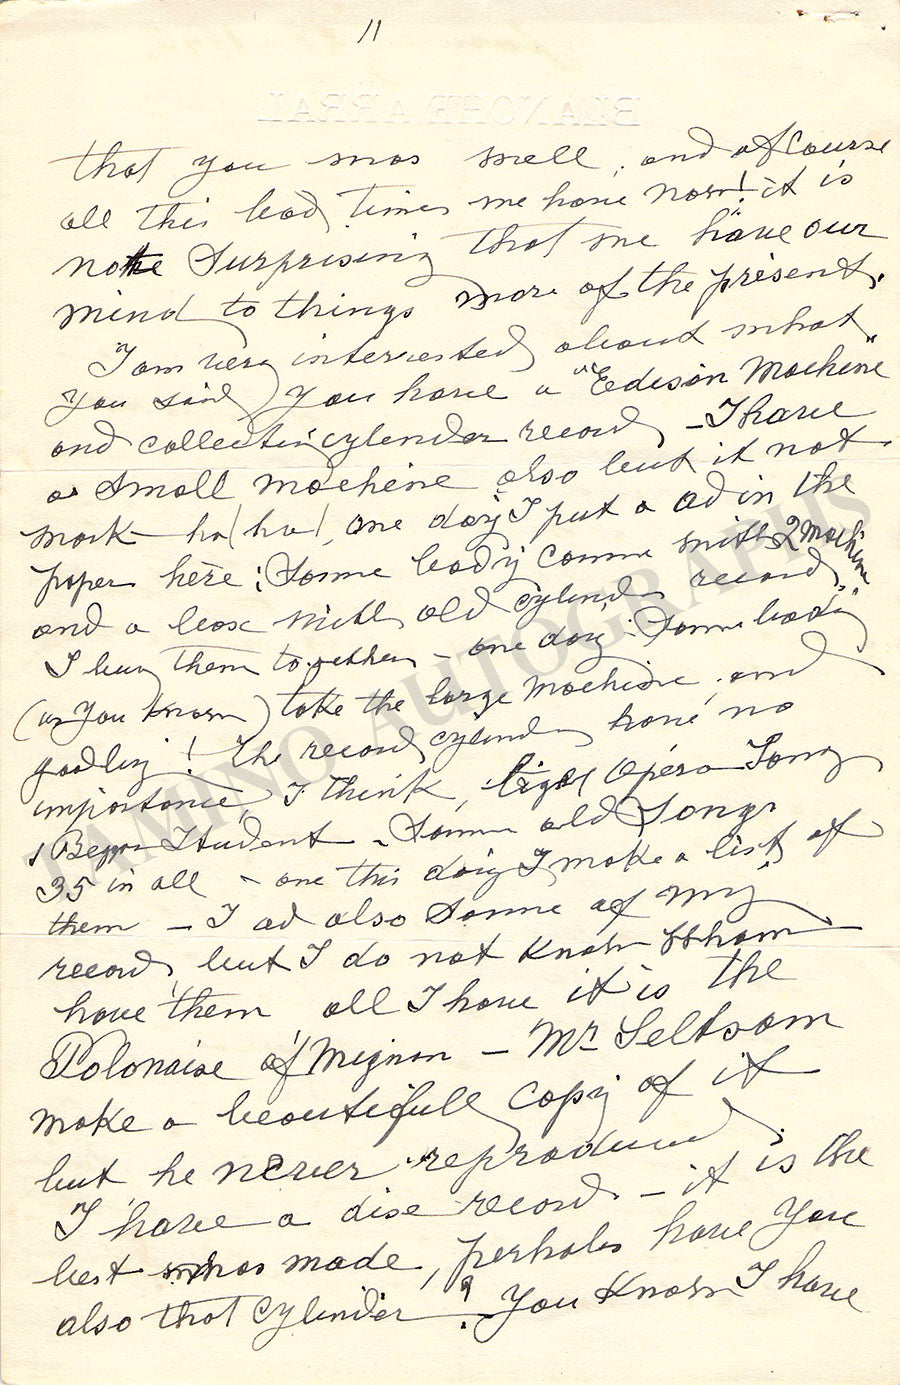 11
BLANCHE ARRAL
that you was well. and of course
all this bad times we have now! it is
not surprising that we have our
mind to things more of the present.
I am very interested about what
you said you have a "Edison Machine"
and collection cylinder record - I have
a small machine also but it not
work - ha! ha!, one day I put a ad in the
paper here; Some body comme with 2 machine
and a box with old cylind record,
I buy them together - one day "Some body"
(as you know) take the large machine, and
goodby! The record cylind have no
importance, I think, light Opera Song
1 Beggar Student - Some old Songs
35 in all - one this day I make a list of
them - I ad also Some of my
record, but I do not know Whom
have them all I have it is the
Polonaise of Mignon - Mr. Seltsam
make a beautifull copy of it
but he never reproduced
I have a disc record - it is the
best was made, perhabs have you
also that Cylinder? You Know I have
TAMINO AUTOGRAPHS